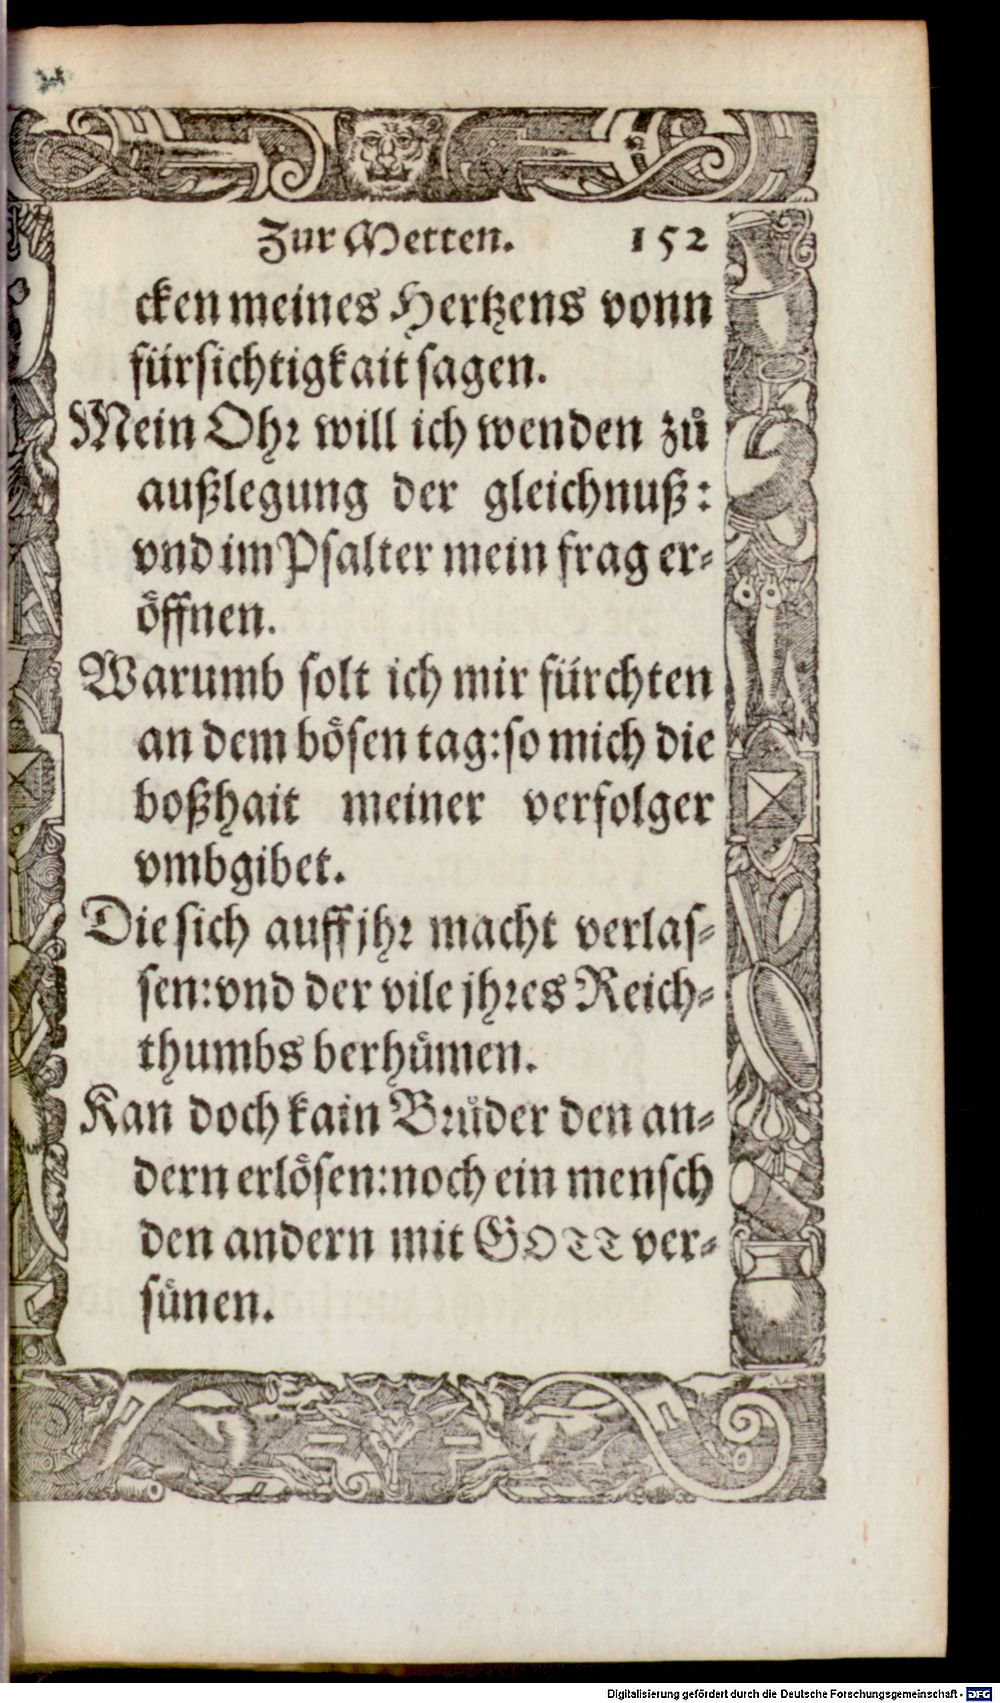 Zur Metten. 152
cken meines Hertzens vonn
fürsichtigkait sagen.
Mein Ohr will ich wenden zů
außlegung der gleichnuß:
vnd im Psalter mein frag er-
öffnen.
Warumb solt ich mir fürchten
an dem bösen tag: so mich die
boßhait meiner verfolger
vmbgibet.
Die sich auff jhr macht verlas-
sen: vnd der vile jhres Reich-
thumbs berhümen.
Kan doch kain Brůder den an-
dern erlösen: noch ein mensch
den andern mit GOTT ver-
sünen.
Digitalisierung gefördert durch die Deutsche Forschungsgemeinschaft - DFG